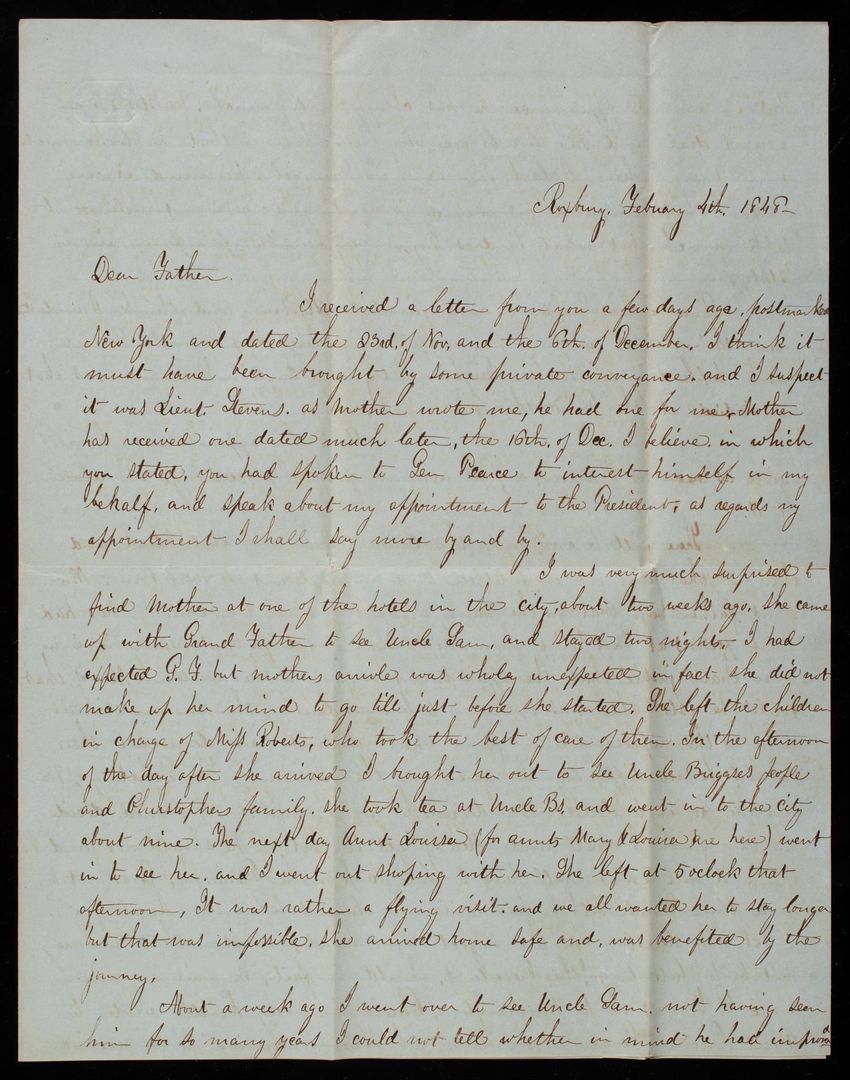 Roxbury. Febuary 4th. 1848
Dear Father.
I received a letter from you a few days ago, postmarked
New York and dated the 23rd. of Nov. and the 6th. of December. I think it
must have been brought by some private conveyance. and I suspect
it was Lieut. Stevens. as Mother wrote me, he had one for me. Mother
has received one dated much later, the 16th. of Dec. I believe in which
you stated, you had spoken to Gen Pearce to interest himself in my
behalf, and speak about my appointment to the President, as regards my
appointment I shall say more by and by.
I was very much surprised to
find Mother at one of the hotels in the city, about two weeks ago. she came
up with Grand Father to see Uncle Sam, and stayed two nights, I had
expected G. F. but mothers arivle was wholey unexpected in fact she did not
make up her mind to go till just before she started. She left the children
in charge of Miss Roberts, who took the best of care of them. In the afternoon
of the day after she arrived I brought her out to see Uncle Briggses people
and Christophers family. she took tea at Uncle Bs. and went in to the city
about nine. The next day Aunt Louissa (for aunts Mary & Louisa are here) went
in to see her. and I went out shoping with her. She left at 5 oclock that
afternoon, It was rather a flying visit. and we all wanted her to stay longer
but that was impossible. she arrived home safe and, was benefited by the
journey.
About a week ago I went over to see Uncle Sam. not having seen
him for so many years I could not tell whether in mind he had improved